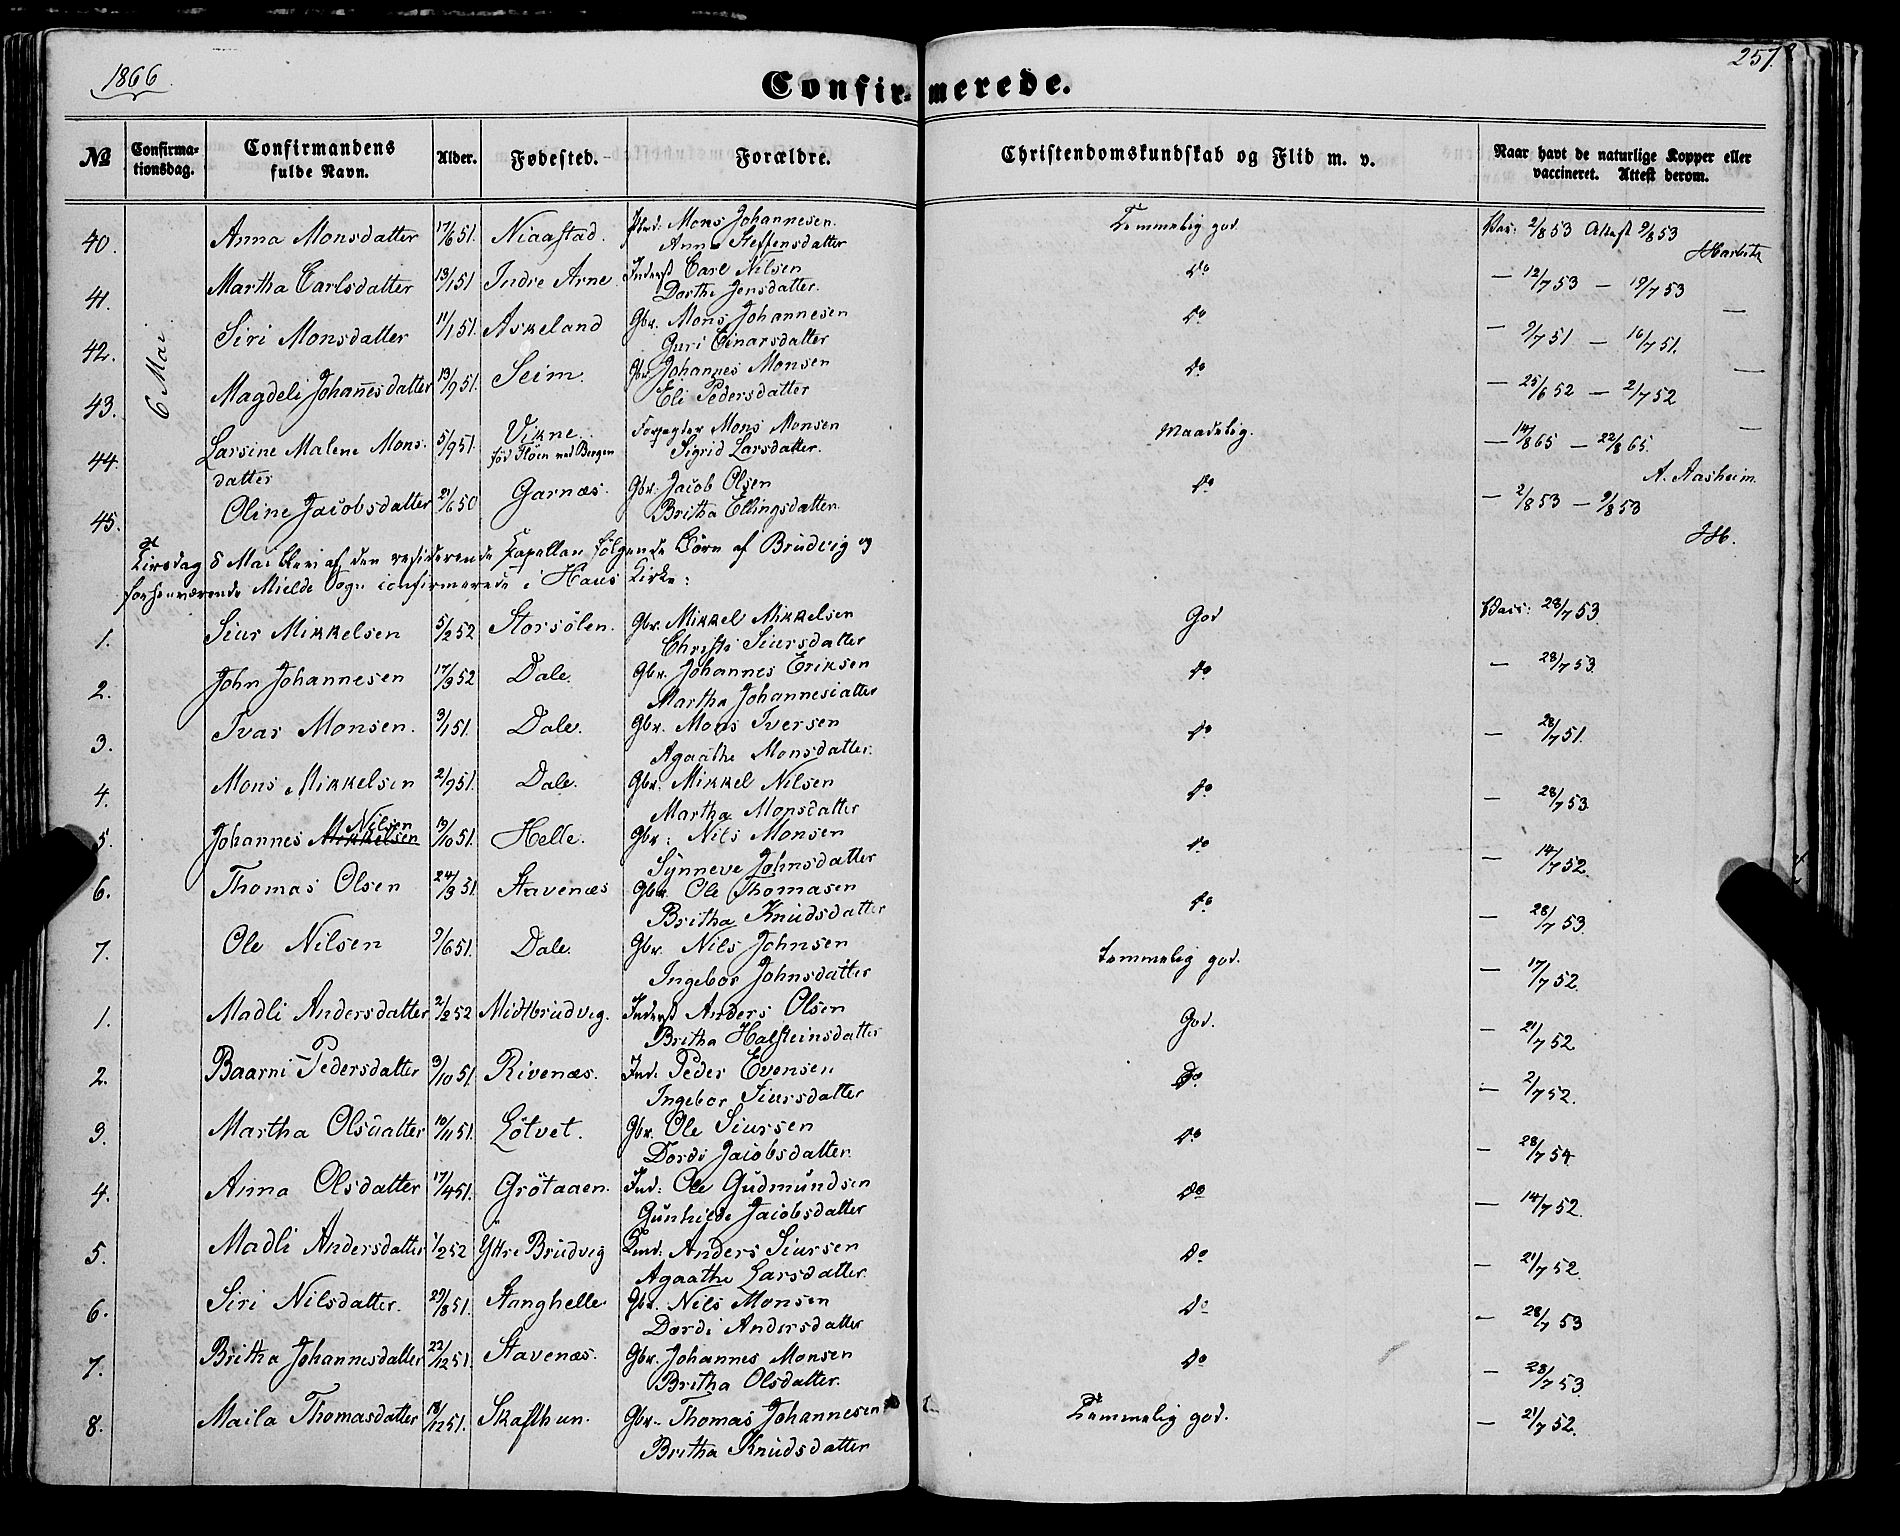 1866. Confirmerede. 257.
№ Confirmationsdag. Confirmandens fulde Navn. Alder. Fødested. Forældre. Christendomskundskab og Flid m. v. Naar havt de naturlige Kopper eller vaccineret. Attest derom.
6 Mai
40. Anna Monsdatter 17/6 51. Niaastad. Mons Johannesen. Anna Steffensdatter Temmelig god. Vac: 2/8 53 Attest 9/8 53 Harbitz
41. Martha Carlsdatter 13/1 51 Indre Arne Inderst Carl Nilsen Dorthe Jensdatter. Do — 12/7 53 — 19/7 53 —
42. Siri Monsdatter 11/1 51 Askeland Gbr. Mons Johannesen Guri Einarsdatter Do — 9/7 51 — 16/7 51. —
43. Magdeli Johannesdatter 13/9 51. Seim. Gbr. Johannes Monsen Eli Pedersdatter Do — 25/6 52 — 2/7 52 —
44. Larsine Malene Monsdatter 5/9 51. Vikne. fød Fløen ved Bergen Forpagter Mons Monsen Sigrid Larsdatter. Maadelig. — 14/8 65 — 22/8 65. A. Aasheim.
45. Oline Jacobsdatter 21/6 50 Garnæs. Gbr. Jacob Olsen Britha Ellingsdatter. Do — 2/8 53 — 9/8 53 HH.
Tirsdag 8 Mai blev af den residerende Kapellan følgende Børn af Brudvig og
forhenværende Mjelde Sogn confirmerede i Haus Kirke:
1. Siur Mikkelsen 5/2 52 Storsølen. Gbr. Mikkel Mikkelsen Christi Siursdatter God Vacc: 28/7 53.
2. John Johannesen 17/3 52 Dale. Gbr. Johannes Eriksen Martha Johannesdatter Do — 28/7 53.
3. Ivar Monsen. 3/1 51. Dale. Gbr. Mons Iversen Agaathe Monsdatter. Do — 28/7 51.
4. Mons Mikkelsen 2/9 51. Dale. Gbr. Mikkel Nilsen Martha Monsdatter Do — 28/7 53.
5. Johannes Mikkelsen Nilsen 19/10 51. Helle. Gbr: Nils Monsen Synneve Johnsdatter Do — 14/7 52.
6. Thomas Olsen 24/3 51. Stavenæs Gbr. Ole Thomasen Britha Knudsdatter Do — 28/7 53.
7. Ole Nilsen 9/6 51. Dale. Gbr. Nils Johnsen Ingebor Johnsdatter temmelig god. — 17/7 52.
1. Madli Andersdatter 2/2 52 Midtbrudvig. Inderst Anders Olsen Britha Halsteinsdatter God. — 21/7 52.
2. Baarni Pedersdatter 3/10 51. Rivenæs. Ind. Peder Evensen Ingebor Siursdatter Do — 2/7 52.
3. Martha Olsdatter 10/11 51. Løtvet. Gbr. Ole Siursen Dordi Jacobsdatter. Do — 28/7 54.
4. Anna Olsdatter 17/4 51. Grøtaaen. Ind: Ole Gudmundsen Gunhilde Jacobsdatter Do — 14/7 52.
5. Madli Andersdatter 1/2 52 Yttre Brudvig Ind: Anders Siursen Agaathe Larsdatter. Do — 21/7 52.
6. Siri Nilsdatter. 29/8 51. Stanghelle Gbr. Nils Monsen Dordi Andersdatter Do — 28/7 53
7. Britha Johannesdatter 22/12 51. Stavenæs. Gbr. Johannes Monsen Britha Olsdatter. Do — 28/7 53.
8. Maila Thomasdatter 18/12 51. Skafthun. Gbr. Thomas Johannesen Britha Knudsdatter Temmelig god. — 21/7 52.